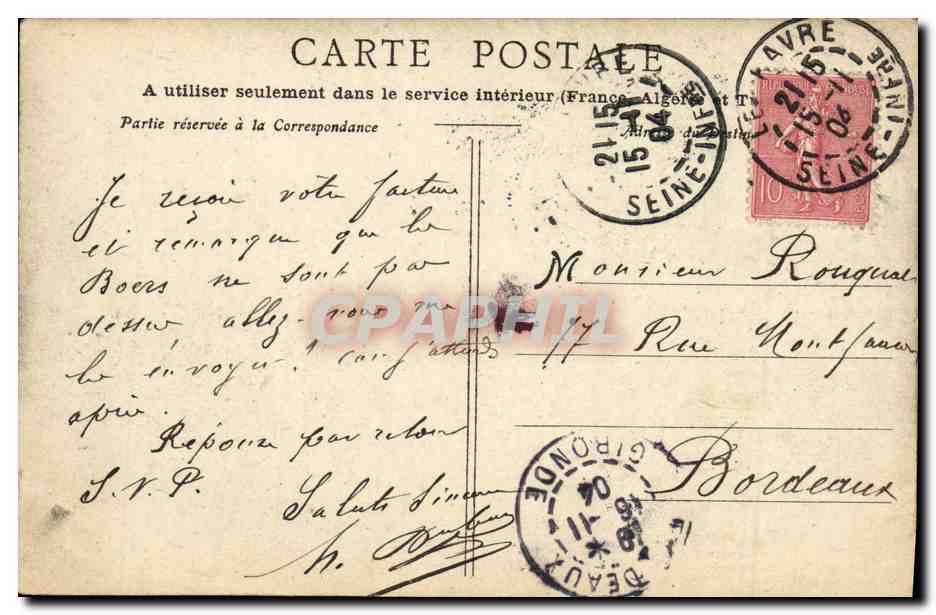 CARTE POSTALE
A utiliser seulement dans le service intérieur (France, Algérie et T
Partie réservée à la Correspondance
Adresse du Destin
Je reçois votre facture
et remarque que les
Boers ne sont pas
dessus allez-vous me
les envoyer! car j'attends
après.
Réponse par retour
S.V.P.
Saluts sincères
h.
Monsieur Rouqual
17 Rue Montfaucon
Bordeaux
LE HAVRE
21 15
15 -11
04
SEINE-INFRE
21 15
15 -11
04
SEINE-INFRE
10
GIRONDE
16 -11
04
DEAUX
CPAPHIL